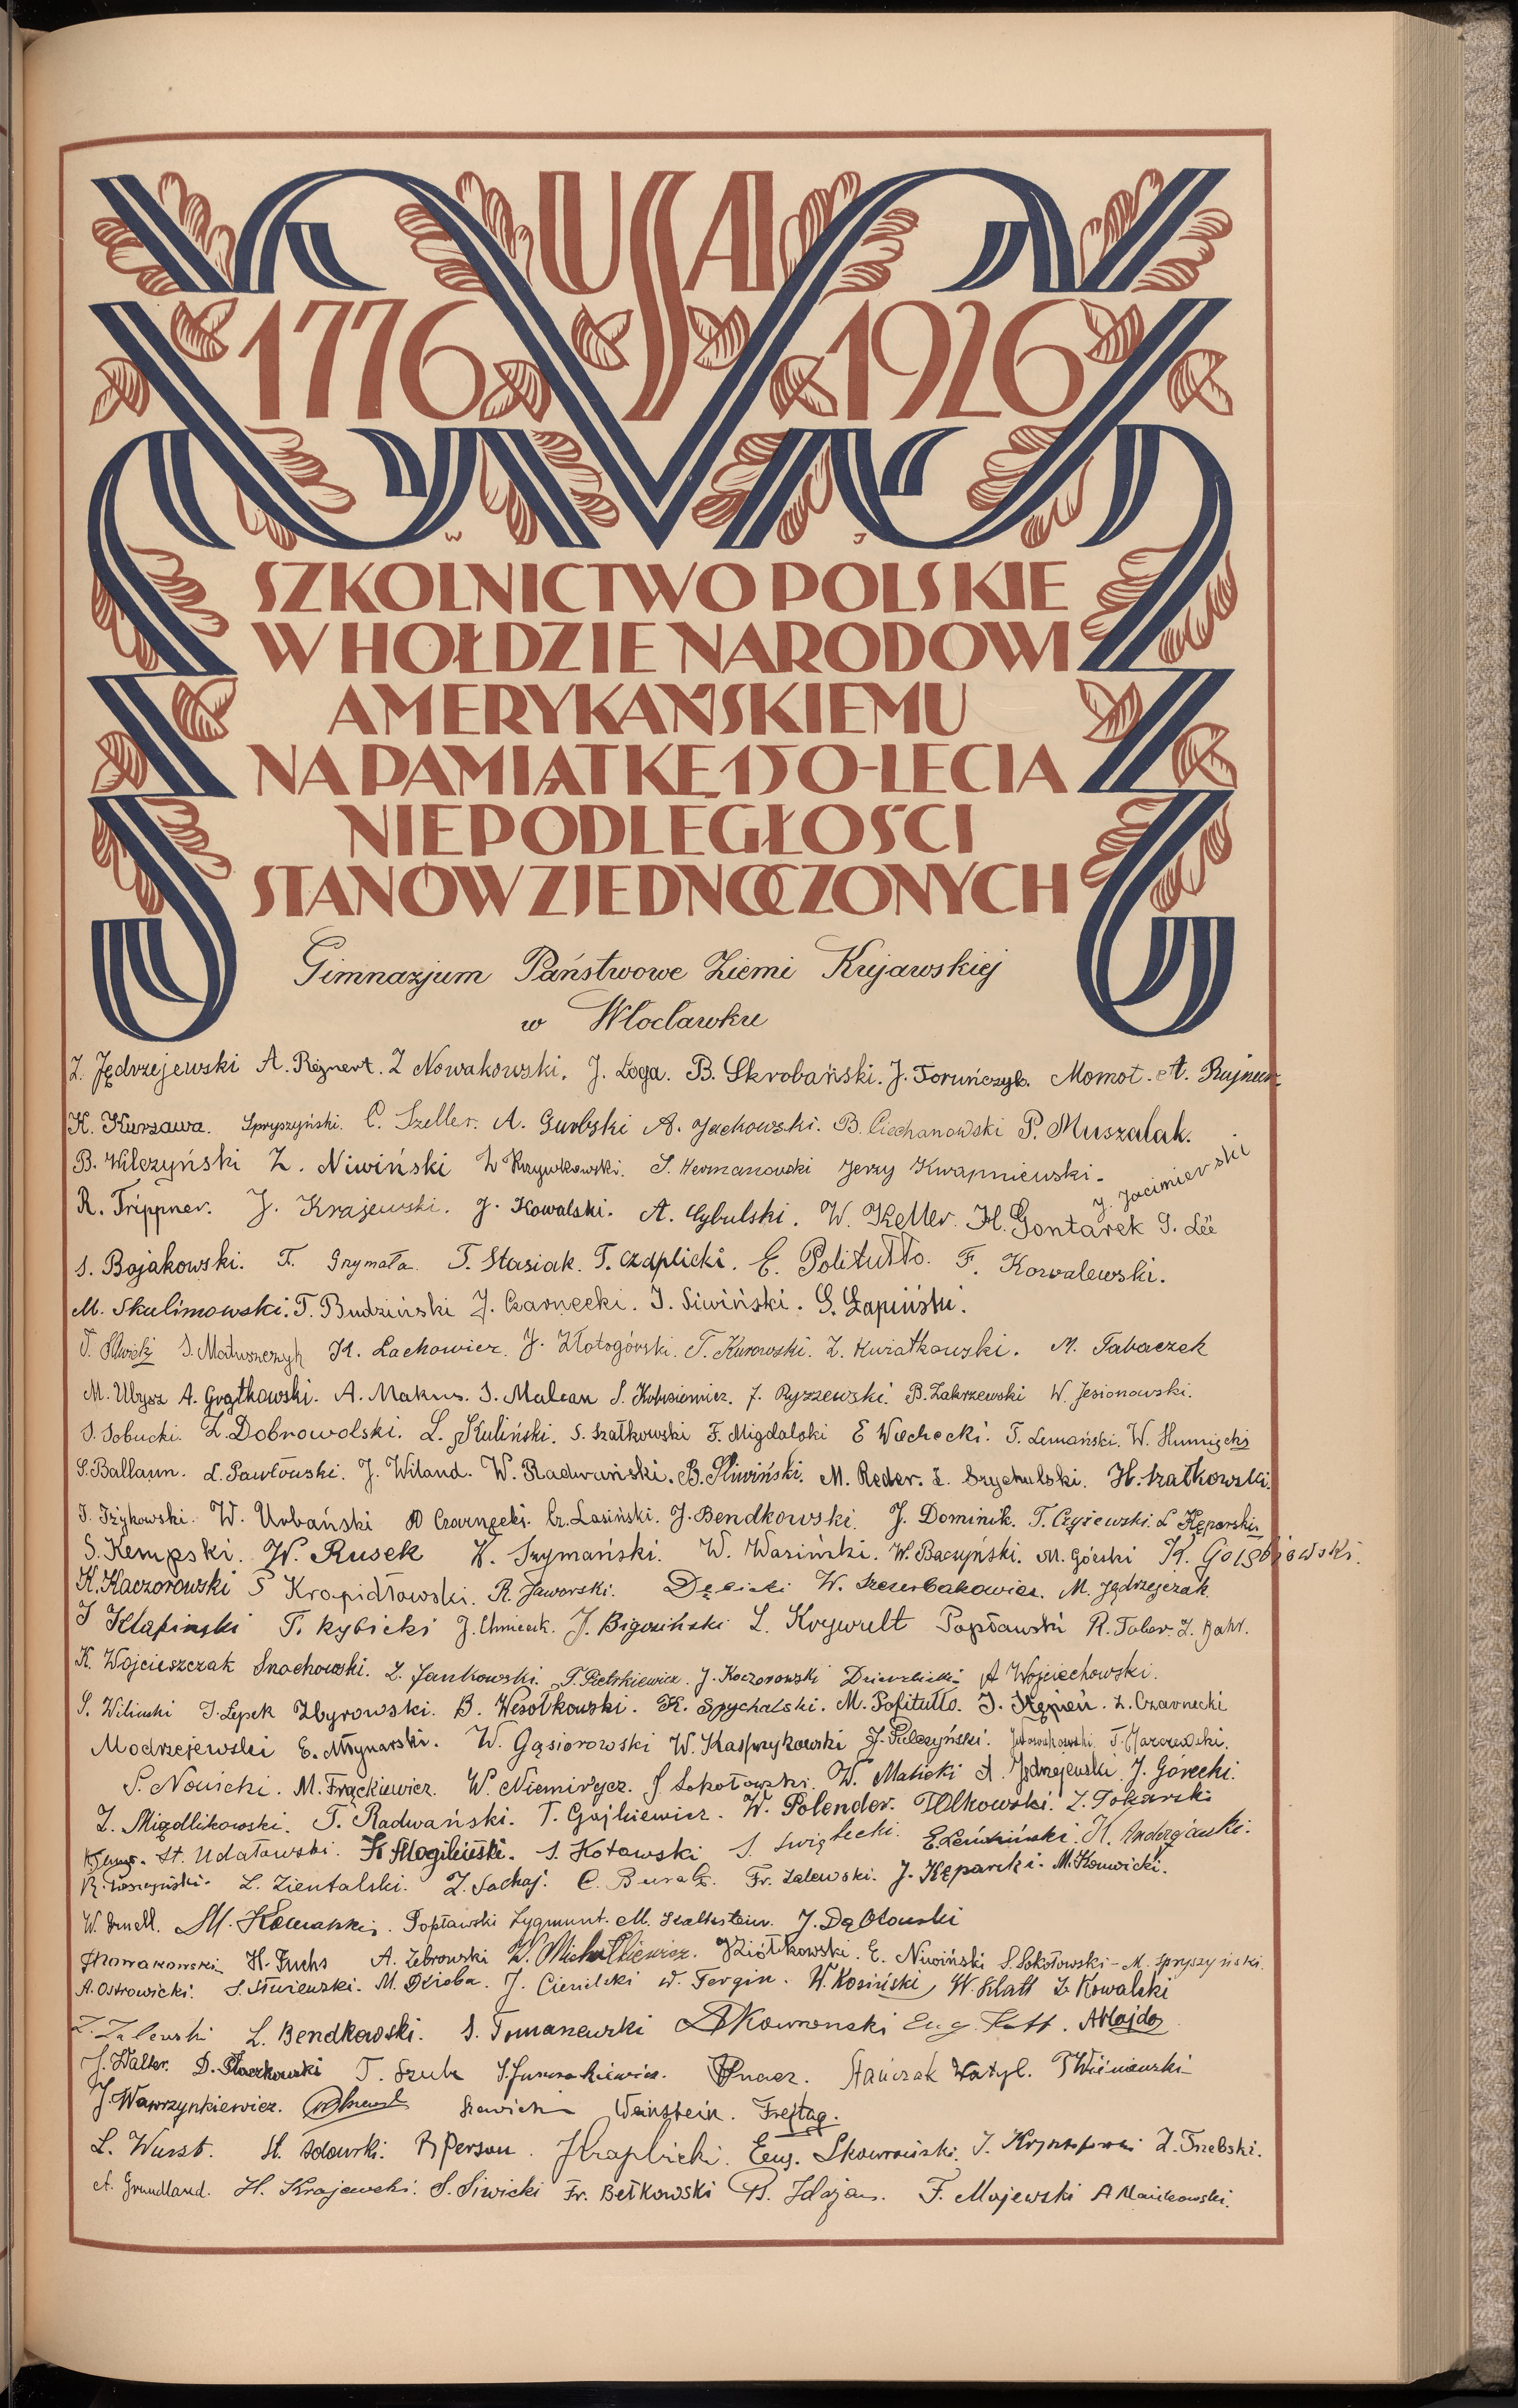 USA
1776 1926
W J
SZKOLNICTWO POLSKIE
W HOŁDZIE NARODOWI
AMERYKAŃSKIEMU
NA PAMIĄTKĘ 150-LECIA
NIEPODLEGŁOŚCI
STANÓW ZJEDNOCZONYCH
Gimnazjum Państwowe Ziemi Kujawskiej
w Włocławku
Z. Jędrzejewski A. Reznert. Z Nowakowski. J. Łoga. B. Skrobański. J. Toruńczyk. Momot. A.
K. Kurzawa. Spryszyński. C. Szeller. A. Gurbski A. Jackowski. B. Ciechanowski P. Muszalak.
B. Wilczyński Z. Niwiński Krzywkowski. S. Hermanowski Jerzy Kwapniewski.
J. Jacimierski
R. Trippner. J. Krajewski. J. Kowalski. A. Cybulski. W. Keller. H. Gontarek G. Lee
S. Bojakowski. T. Grymała. T. Stasiak. T. Czaplicki. E. Politułło. F. Kowalewski.
M. Skulimowski. T. Budziński J. Czarnecki. J. Siwiński. G. Łapiński.
J. Matuszczyk K. Lachowicz. J. Złotogórski. T. Kurowski. Z. Kwiatkowski. M. Tabaczek
M. Ubysz A. Grętkowski. A. Makus. S. Malcan J. Ryszewski. B. Zakrzewski W. Jesionowski.
S. Sobucki. Z. Dobrowolski. L. Kuliński. S. Szatkowski F. Migdalski E Wiechecki. T. Lemański. W. Humięcki
S. Ballaun. L. Pawłowski. J. Wiland. W. Radwański. B. Śliwiński. M. Reder. Z. Szychulski. H. Szatkowski.
T. Iżykowski. W. Urbański Czarnecki. Cz. Lasiński. J. Bendkowski. J. Dominik. T. Czyżewski. L Kęparski
S. Kempski. W. Rusek K. Szymański. W. Wasiński. W. Baczyński. M. Górski K. Gołębiowski.
K. Kaczorowski S Kropidłowski. R. Jaworski. Dębicki W. Szczerbakowicz. M. Jędrzejczak.
J Klapiński T. Rybicki J. Chmieck. J. Bigosiński L. Krywult Popławski R. Tober. Z. Bahr.
K. Wojcieszczak Snochowski. Z. Jankowski. T. Pietrkiewicz. J. Kaczorowski A Wojciechowski.
S. Wiliński J. Lepek Zbyrowski. B. Wesołkowski. K. Spychalski. M. Pofitułło. J. Stępień. Z. Czarnecki
Modrzejewski E. Młynarski. W. Gąsiorowski W. Kasprzykowski J. Pułczyński.
S. Nowicki. M. Frąckiewicz. W. Niemirycz. J. Sokołowski. W. Malicki A. Jędrzejewski. J. Górecki.
Z. Migdlikowski. T. Radwański. T. Gajkiewicz. W. Polender. T. Olkowski. Z. Tokarski
St. Udałowski. K. Mogilnicki. S. Kotowski S. Święcki.
L. Zientalski. Z. Sochaj. C. Fr. Zalewski. J. Kęparski. M. Konwicki.
M. Popławski Zygmunt. J. Dąbrowski
J Nowakowski H. Fuchs A. Żebrowski W. Michałkiewicz. Ziółkowski. E. Niwiński S. Sokołowski – M. Spryszyński.
A. Ostrowicki. M. Dzioba. J. Cieniecki W. Fergin. W. Kosiński W. Klatt Z. Kowalski
Z. Zalewski L. Bendkowski. S. Tomaszewski A Skowroński Eug. Kott.
J. Walter. D. T. Szulc Stańczak Watyl. T Wiśniewski
J. Wawrzynkiewicz. Weinstein. Frejtag.
L. Wurst. St. Sdowski. R Person. J Kraplicki. Eug. Skowroński. Z. Trzebski.
A. Grundland. H. Krajewski. S. Siwicki Fr. Bełkowski B. F. Majewski A Mańkowski.